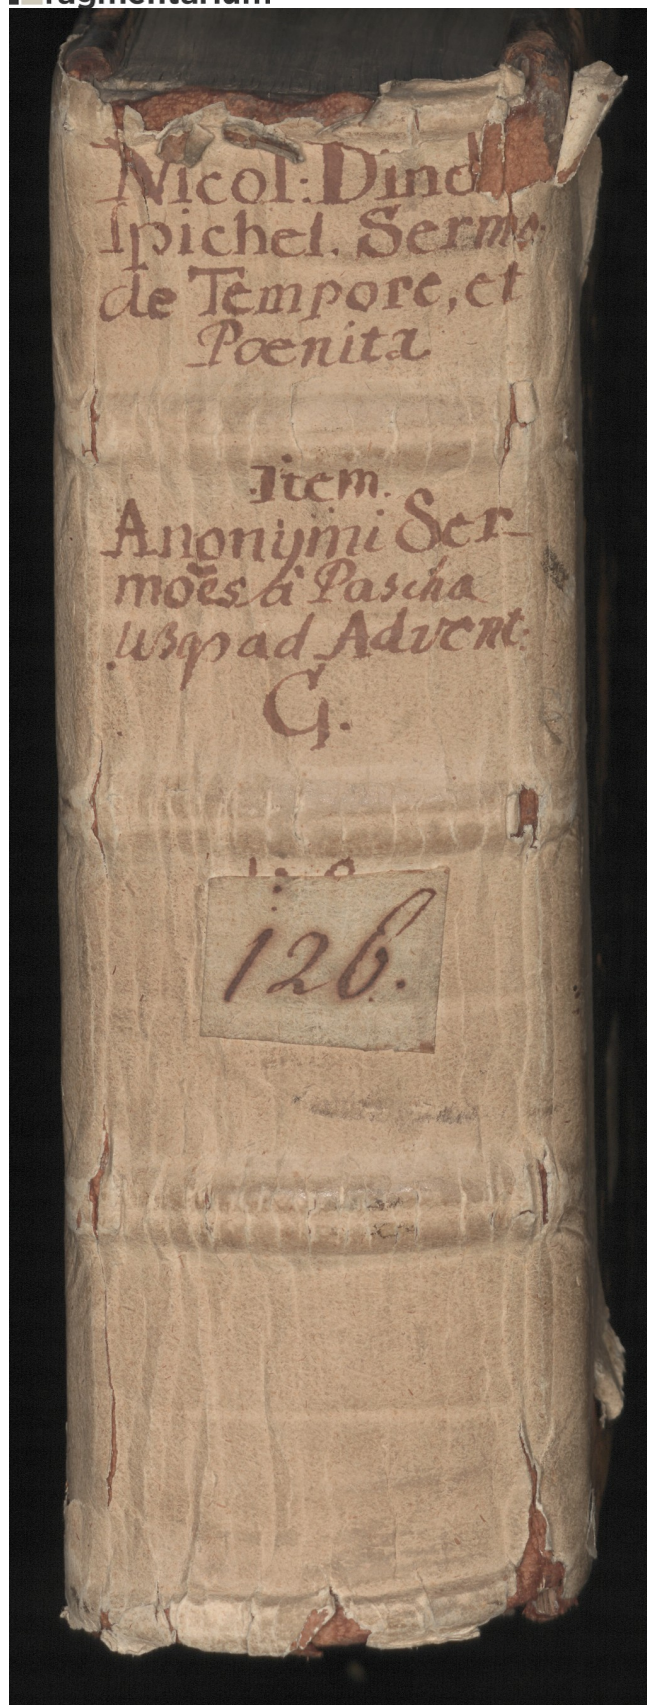 fragmentarium
Nicol: Dinc
lpichel. Sermo.
de Tempore, et
Pœnita
Item.
Anonymi Ser-
mões â Pascha
usqȝ ad Advent:
G.
126.